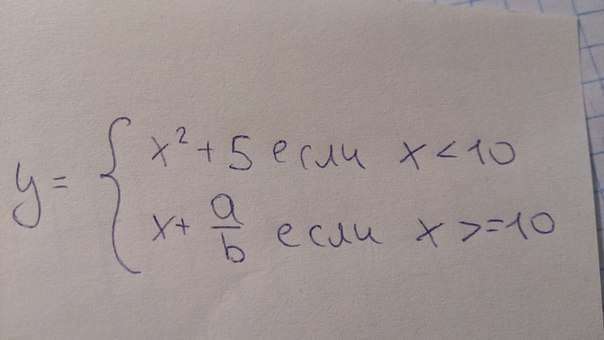 y = { x² + 5 если x < 10
x + a/b если x >= 10